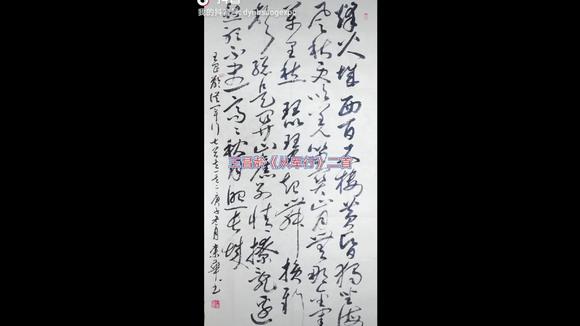 我的抖音
烽火城西百尺楼黄昏独坐海
风秋更吹羌笛关山月无那金闺
万里愁 琵琶起舞换新
声总是关山旧别情撩乱边
愁听不尽高高秋月照长城
王昌龄从军行七首之一之二 庚子冬月 书
王昌龄《从军行》二首